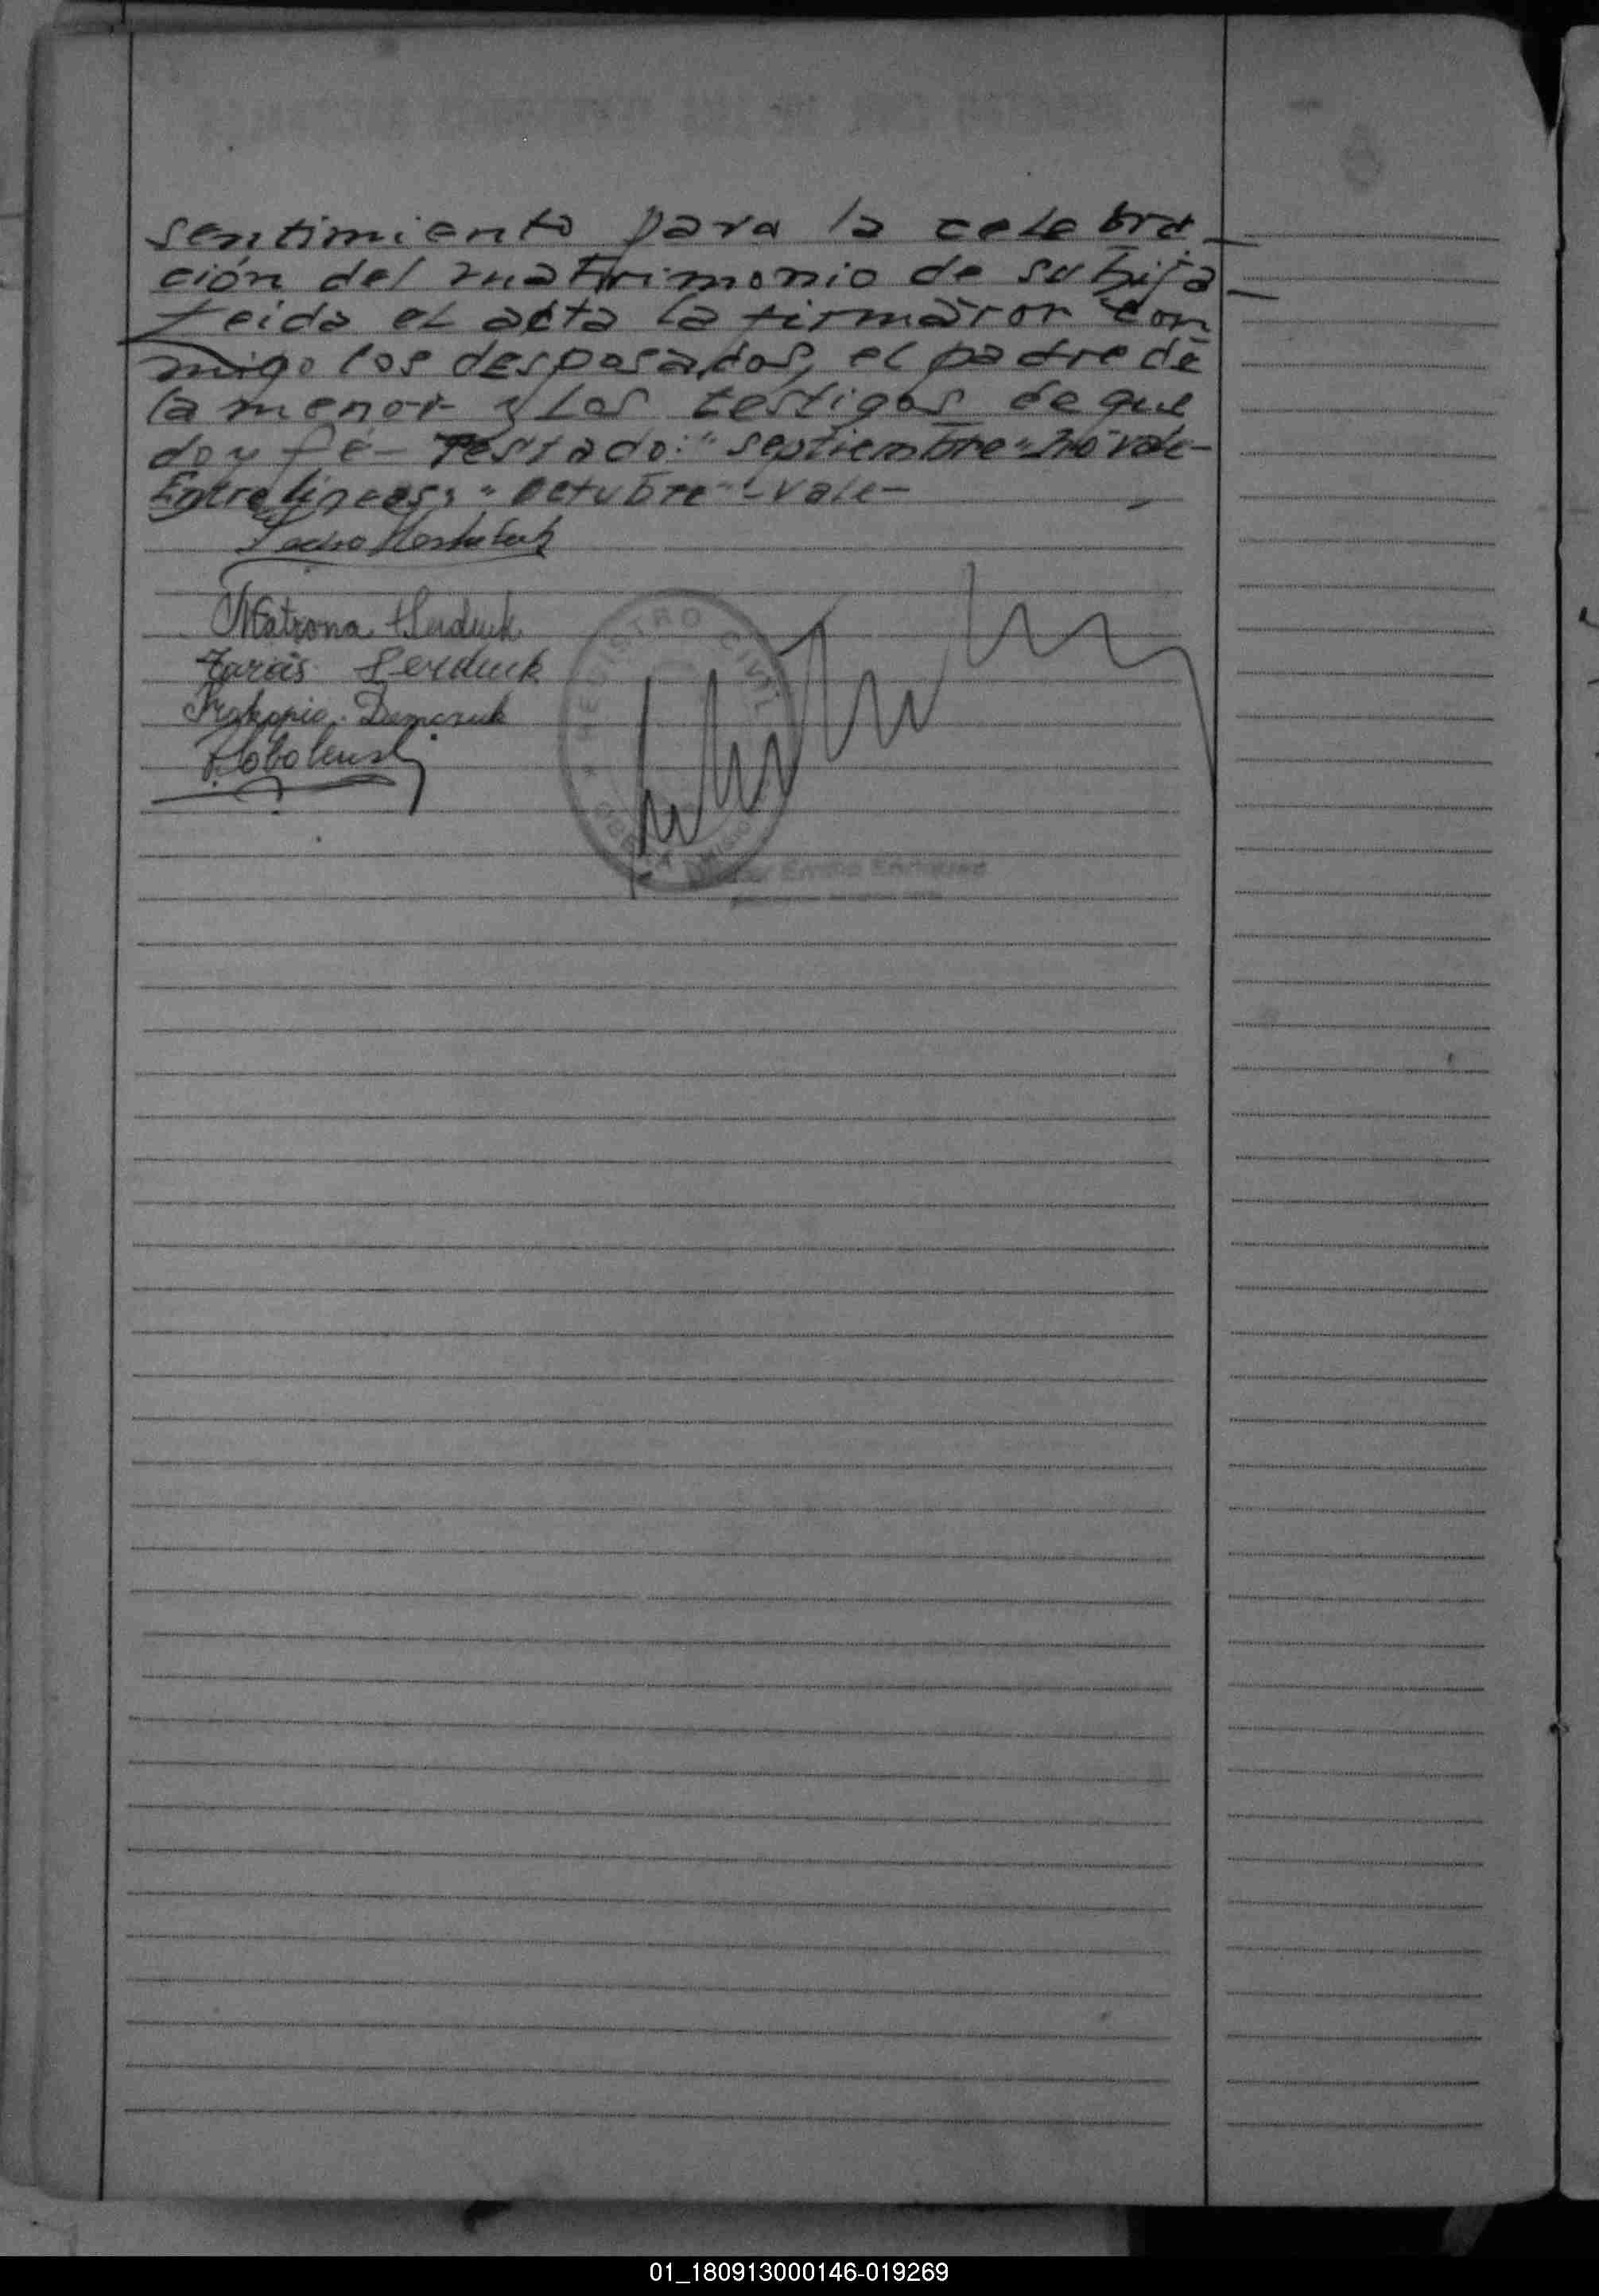 sentimiento para la celebra_
ción del matrimonio de su hija_
Leida el acta la firmaron con
migo los desposados, el padre de
la menor y los testigos de que
doy fé - Testado: "septiembre" no vale-
Entrelineas: "octubre" - vale-
Pedro
Matrona Serduk
Tarás Serduck
Prokopio Demczuk
F. Sobolenski
REGISTRO CIVIL
Emilio Enriquez
01_180913000146-019269